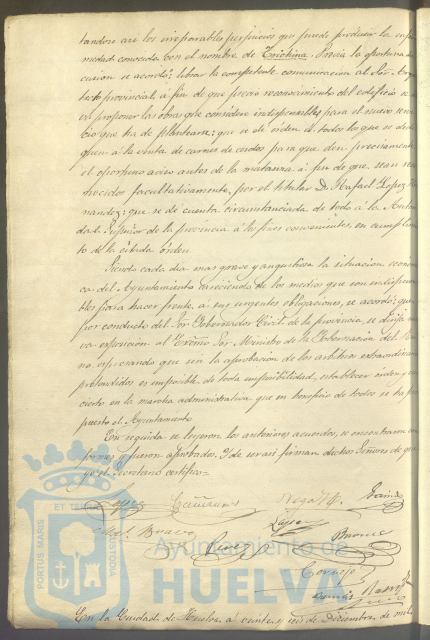 tandose asi los irreparables perjuicios que puede producir la enfer
medad conocida con el nombre de Trichina. Previa la oportuna dis
cusion se acordó; librar la competente comunicacion al Sor. Arqui
tecto provincial, a fin de que previo reconocimiento del edificio se sir
va proponer las obras que considere indispensables para el nuevo servi
cio que ha de plantearse; que se de orden a todos los que se dedi
quen a la venta de carnes de cerdos para que den precisamente
el oportuno aviso antes de la matanza a fin de que sean reco
nocidos facultativamente, por el titular D. Rafael Lopez Her
nandez; que se de cuenta circunstanciada de todo a la Autori
dad Superior de la provincia a los fines convenientes, en cumplimien
to de la citada orden.
Siendo cada dia mas grave y angustiosa la situacion economi
ca del Ayuntamiento careciendo de los medios que son indispensa
bles para hacer frente a sus urgentes obligaciones, se acordó; que
por conducto del Sor Gobernador Civil de la provincia, se dirija nue
va exposicion al Excmo Sor Ministro de la Gobernacion del Rei
no, esperando que sin la aprobacion de los arbitrios extraordinarios
pretendidos es imposible de toda imposibilidad, establecer orden y con
cierto en la marcha administrativa que en beneficio de todos se ha pro
puesto el Ayuntamiento.
En seguida se leyeron los anteriores acuerdos, se encontraron con
formes y fueron aprobados. Y de ser asi firman dichos Señores de que
yo el Secretario certifico=
Lopez
Vega
Bravo
Cornejo
ET TERRAE
PORTUS MARIS
CUSTODIA
Ayuntamiento de
HUELVA
En la Ciudad de Huelva, a veinte y seis de Diciembre de mil